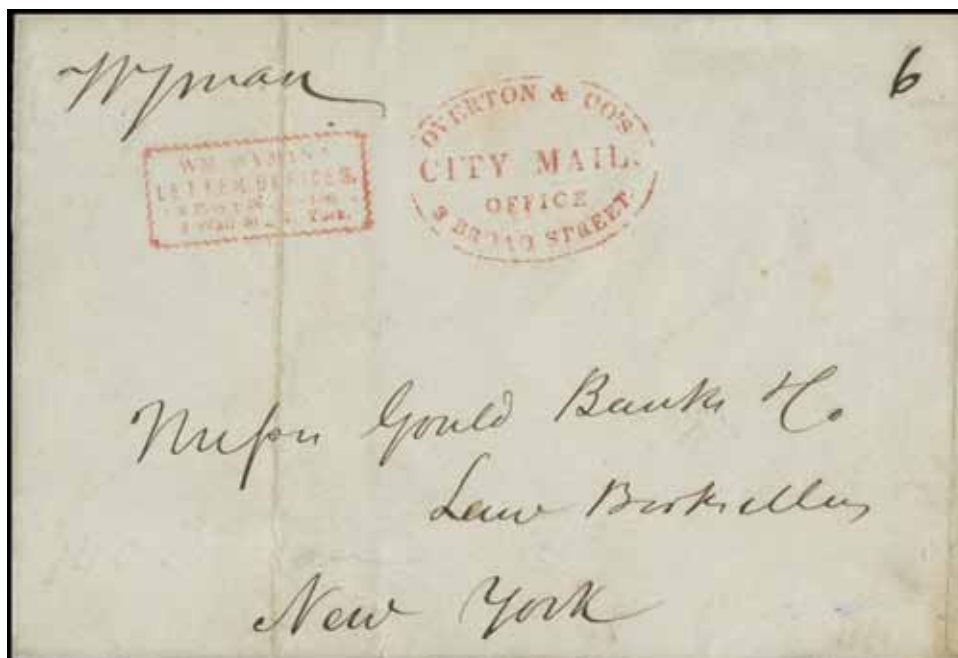 Wyman
6
WM. WYMAN'S
LETTER OFFICES,
York.
OVERTON & CO'S
CITY MAIL.
OFFICE
3 BROAD STREET.
Messrs Gould Banks & Co
Law Booksellers
New York